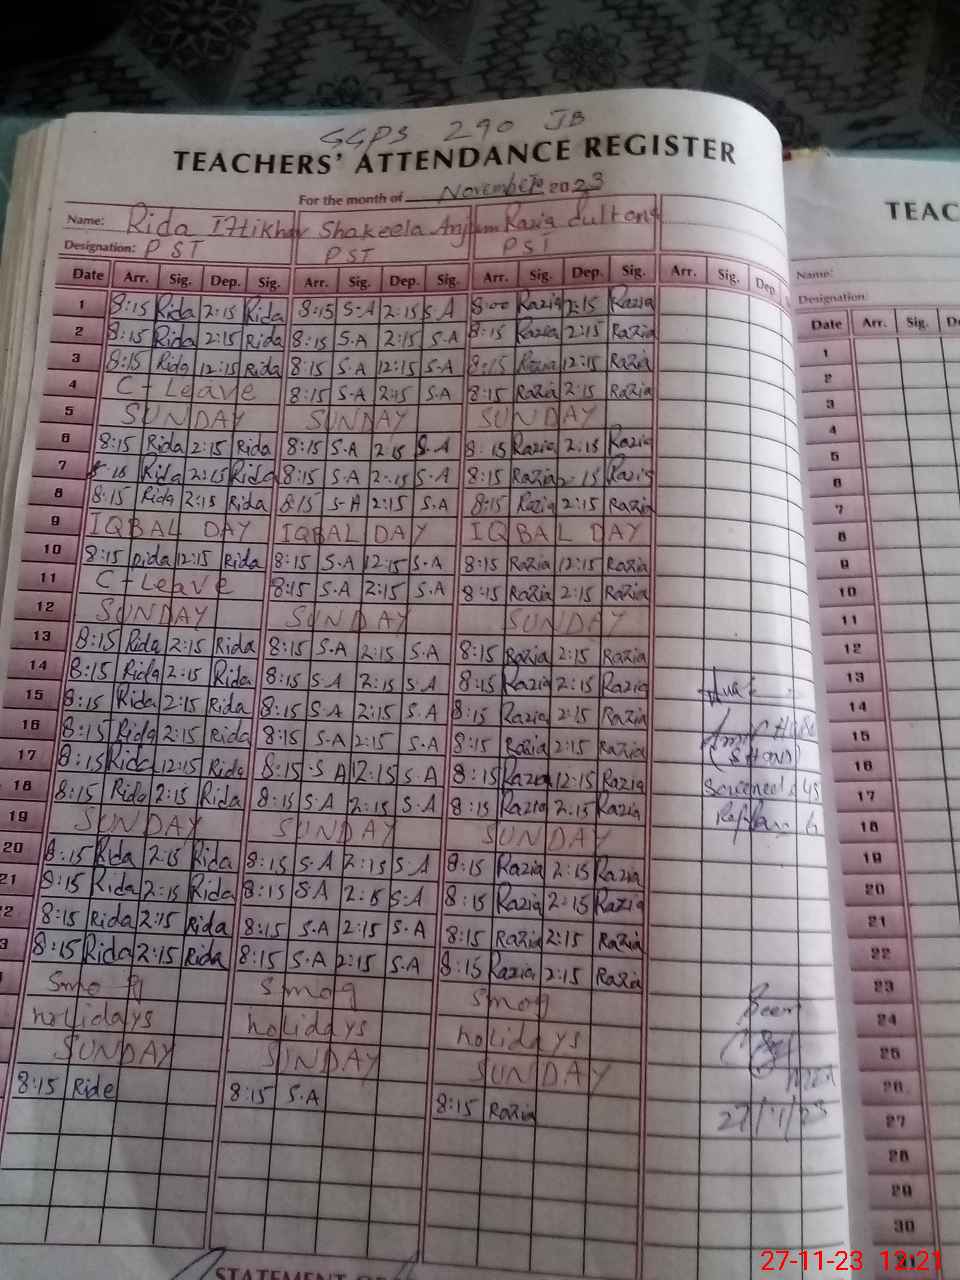 GGPS 290 JB
TEACHERS' ATTENDANCE REGISTER
For the month of November 2023
Name: Rida Iftikhar Shakeela Anjum Razia Sultana
Designation: PST PST PST
Date Arr. Sig. Dep. Sig. Arr. Sig. Dep. Sig. Arr. Sig. Dep. Sig. Arr. Sig. Dep
1 8:15 Rida 2:15 Rida 8:15 S-A 2:15 S-A 8:00 Razia 2:15 Razia
2 8:15 Rida 2:15 Rida 8:15 S.A 2:15 S.A 8:15 Razia 2:15 Razia
3 8:15 Rida 12:15 Rida 8:15 S.A 12:15 S.A 8:15 Razia 12:15 Razia
4 C-Leave 8:15 S.A 2:15 S.A 8:15 Razia 2:15 Razia
5 SUNDAY SUNDAY SUNDAY
6 8:15 Rida 2:15 Rida 8:15 S.A 2:15 S.A 8:15 Razia 2:15 Razia
7 Rida 2:15 Rida 8:15 S.A 2:15 S.A 8:15 Razia 2:15 Razia
8 8:15 Rida 2:15 Rida 8:15 S-A 2:15 S.A 8:15 Razia 2:15 Razia
9 IQBAL DAY IQBAL DAY IQBAL DAY
10 8:15 Rida 12:15 Rida 8:15 S.A 12:15 S.A 8:15 Razia 12:15 Razia
11 C-Leave 8:15 S.A 2:15 S.A 8:15 Razia 2:15 Razia
12 SUNDAY SUNDAY SUNDAY
13 8:15 Rida 2:15 Rida 8:15 S.A 2:15 S.A 8:15 Razia 2:15 Razia
14 8:15 Rida 2:15 Rida 8:15 S.A 2:15 S.A 8:15 Razia 2:15 Razia
15 8:15 Rida 2:15 Rida 8:15 S.A 2:15 S.A 8:15 Razia 2:15 Razia
16 8:15 Rida 2:15 Rida 8:15 S.A 2:15 S.A 8:15 Razia 2:15 Razia
17 8:15 Rida 12:15 Rida 8:15 S A 12:15 S.A 8:15 Razia 12:15 Razia
18 8:15 Rida 2:15 Rida 8:15 S.A 2:15 S.A 8:15 Razia 2:15 Razia
19 SUNDAY SUNDAY SUNDAY
20 8:15 Rida 2:15 Rida 8:15 S-A 2:15 S.A 8:15 Razia 2:15 Razia
21 8:15 Rida 2:15 Rida 8:15 S.A 2:15 S.A 8:15 Razia 2:15 Razia
2 8:15 Rida 2:15 Rida 8:15 S.A 2:15 S.A 8:15 Razia 2:15 Razia
3 8:15 Rida 2:15 Rida 8:15 S.A 2:15 S.A 8:15 Razia 2:15 Razia
Smog Smog Smog
holidays holidays holidays
SUNDAY SUNDAY SUNDAY
8:15 Rida 8:15 S.A 8:15 Razia
Screened 45
Seen
27/11/23
STATEMENT OF
TEAC
Name:
Designation:
Date Arr. Sig. De
1
2
3
4
5
6
7
8
9
10
11
12
13
14
15
16
17
18
19
20
21
22
23
24
25
26
27
28
29
30
31
27-11-23 12:21